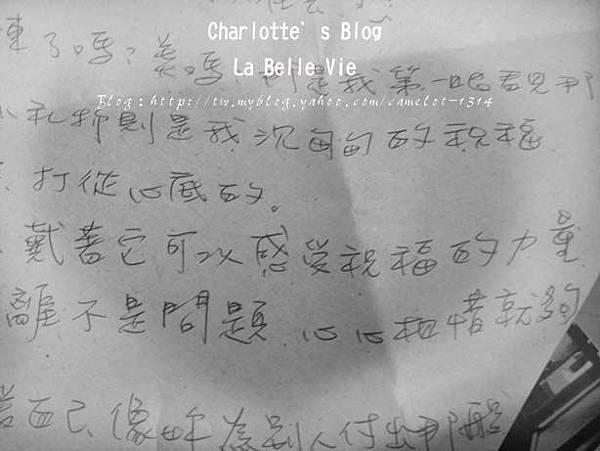 Charlotte's Blog
La Belle Vie
了嗎?美嗎 是我第一眼看見那
Blog:http://tw.myblog.yahoo.com/camelot-1314
小禮物則是我沉甸甸的祝福
打從心底的。
戴著它可以感受祝福的力量
離不是問題 心心相惜就夠
自己像妳為別人付出那般